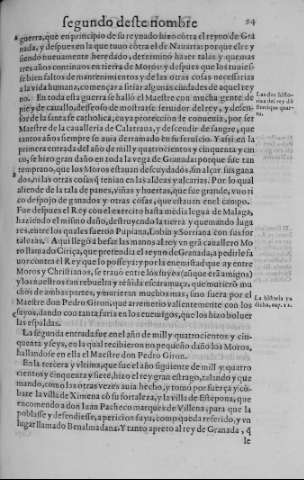 segundo deste nombre 24
guerra, que en principio de su reynado hizo cõtra el reyno de Gra
nada, y despues en la que tuuo cõtra el de Nauarra: porque el rey
siendo nueuamente heredado, determinò hazer talas y quemas
tres años continuos en tierra de Moros: y despues que los tuuies-
se bien faltos de mantenimientos y de las otras cosas necessarias
a la vida humana, començar a sitiar algunas ciudades de aquel rey
no. En toda esta guerra se hallò el Maestre con mucha gente de
pie y de cauallo, desseoso de mostrarse seruidor del rey, y defen-
sor de la santa fe catholica, cuya protection le conuenia, por ser
Maestre de la caualleria de Calatraua, y defendir de sangre, que
tantos años siempre se auia derramado en su seruicio. Y assi en la
primera entrada del año de mill y quatrocientos y cinquenta y cin
co, se hizo gran daño en toda la vega de Granada: porque fue tan
temprano, que los Moros estauan descuydados, sin alçar sus gana
dos, ni las otras cosas q̃ tenian en las aldeas y alcarias. Por lo qual
allende de la tala de panes, viñas y huertas, que fue grande, vuo ri
co despojo de ganados y otras cosas, que estauan en el campo.
Fue despues el Rey con el exercito hasta media legua de Malaga,
haziendo el mismo daño, destruyendo la tierra y quemando luga
res, entre los quales fuerõ Pupiana, Lobin y Sorriana con sus for
talezas. Aqui llegò a besar las manos al rey vn grã cauallero Mo
ro llamado Ciriça, que pretendia el reyno de Granada, a pedirle fa
uor contra el Rey que lo posseya: y por la enemistad que ay entre
Moros y Christianos, se trauò entre los suyos (aunque era amigos)
y los nuestros tan rebuelta y reñida escaramuça, que murierõ mu
chos de ambas partes, y murieran muchos mas, sino fuera por el
Maestre don Pedro Giron, que arremetio valientemente con los
suyos, dando con tanta furia en los enemigos, que los hizo boluer
las espaldas.
La segunda entrada fue en el año de mill y quatrocientos y cin-
quenta y seys, en la qual recibieron no pequeño daño los Moros,
hallandose en ella el Maestre don Pedro Giron.
En la tercera y vltima, que fue el año siguiente de mill y quatro
cientos y cinquenta y siete, hizo el rey gran estrago, talando y que
mando, como las otras vezes auia hecho, y tomò por fuerça y cõ-
bate la villa de Ximena cõ su fortaleza, y la villa de Estepona, que
encomendò a don Iuan Pacheco marques de Villena, para que la
poblasse y defendiesse, a peticion suya, como queda referido, y vn
lugar llamado Benalmadana. Y tanto apretò al rey de Granada, q̃
le
La historia ya
dicha, cap. 12.